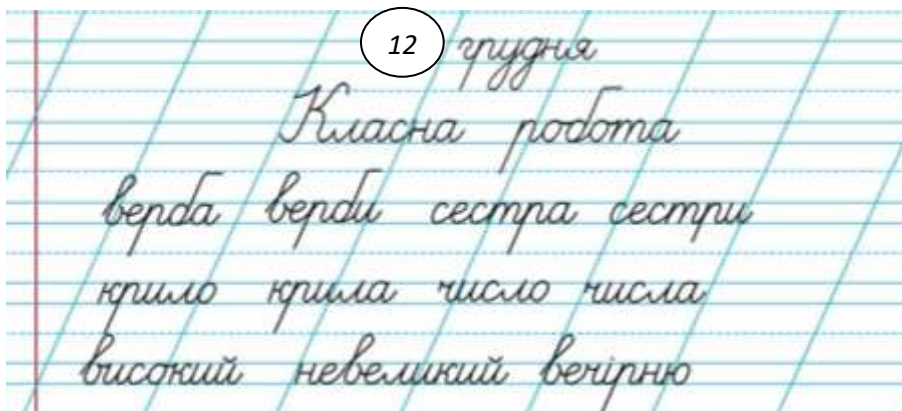 12 грудня
Класна робота
верба верби сестра сестри
крило крила число числа
високий невеликий вечірню